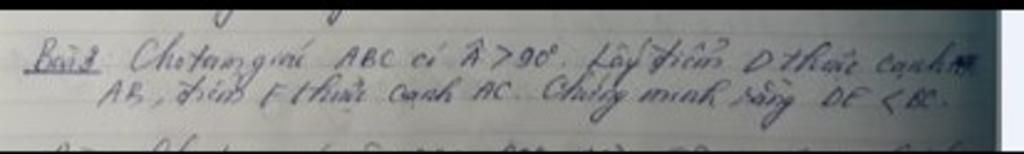 Bài 3: Cho tam giác ABC có Â > 90°. Lấy điểm D thuộc cạnh
AB, điểm E thuộc cạnh AC. Chứng minh rằng DE < BC.